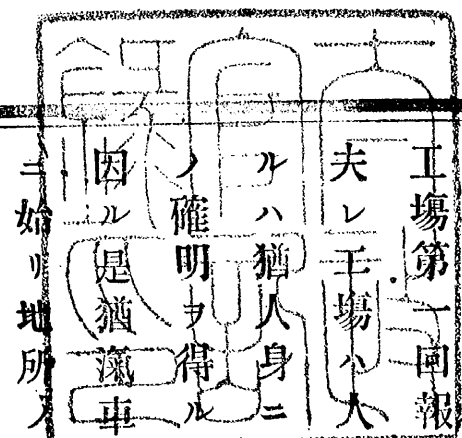 工塲第一回報
夫レ工塲ハ人
ルハ猶人身ニ
ノ確明ヲ得ル
因ル是猶滊車
ニ始リ地所ノ